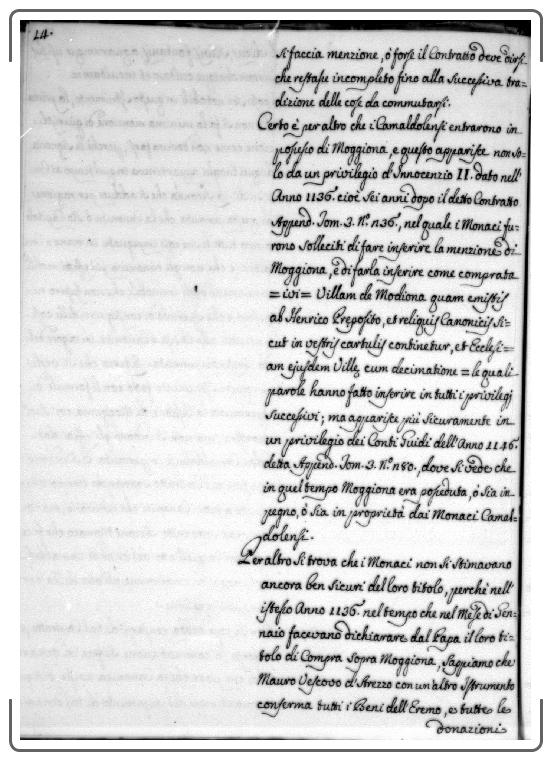 14.
si faccia menzione, ò forse il Contratto deve dirsi
che restasse incompleto fino alla successiva tra-
dizione delle cose da commutarsi.
Certo è per altro che i Camaldolensi entrarono in
possesso di Moggiona, e questo apparisce non so-
lo da un privilegio d'Innocenzio II. dato nell'
Anno 1136. cioè sei anni dopo il detto Contratto
Append. Tom. 3. N.º 136., nel quale i Monaci fu-
rono solleciti di fare inserire la menzione di
Moggiona, e di farla inserire come comprata
= ivi = Villam de Modiona quam emistis
ab Henrico Preposito, et reliquis Canonicis si-
cut in vestris cartulis continetur, et Ecclesi-
am ejusdem Ville cum decimatione = le quali
parole hanno fatto inserire in tutti i privilegj
successivi; ma apparisce più sicuramente in
un privilegio dei Conti Guidi dell'Anno 1146.
detta Append. Tom. 3. N.º 180., dove si vede che
in quel tempo Moggiona era posseduta, ò sia in
pegno, ò sia in proprietà dai Monaci Camal-
dolensi.
Per altro si trova che i Monaci non si stimavano
ancora ben sicuri del loro titolo, perchè nell'
istesso Anno 1136. nel tempo che nel Mese di Gen-
naio facevano dichiarare dal Papa il loro ti-
tolo di Compra sopra Moggiona, sappiamo che
Mauro Vescovo d'Arezzo con un'altro Istrumento
conferma tutti i Beni dell'Eremo, e tutte le
donazioni